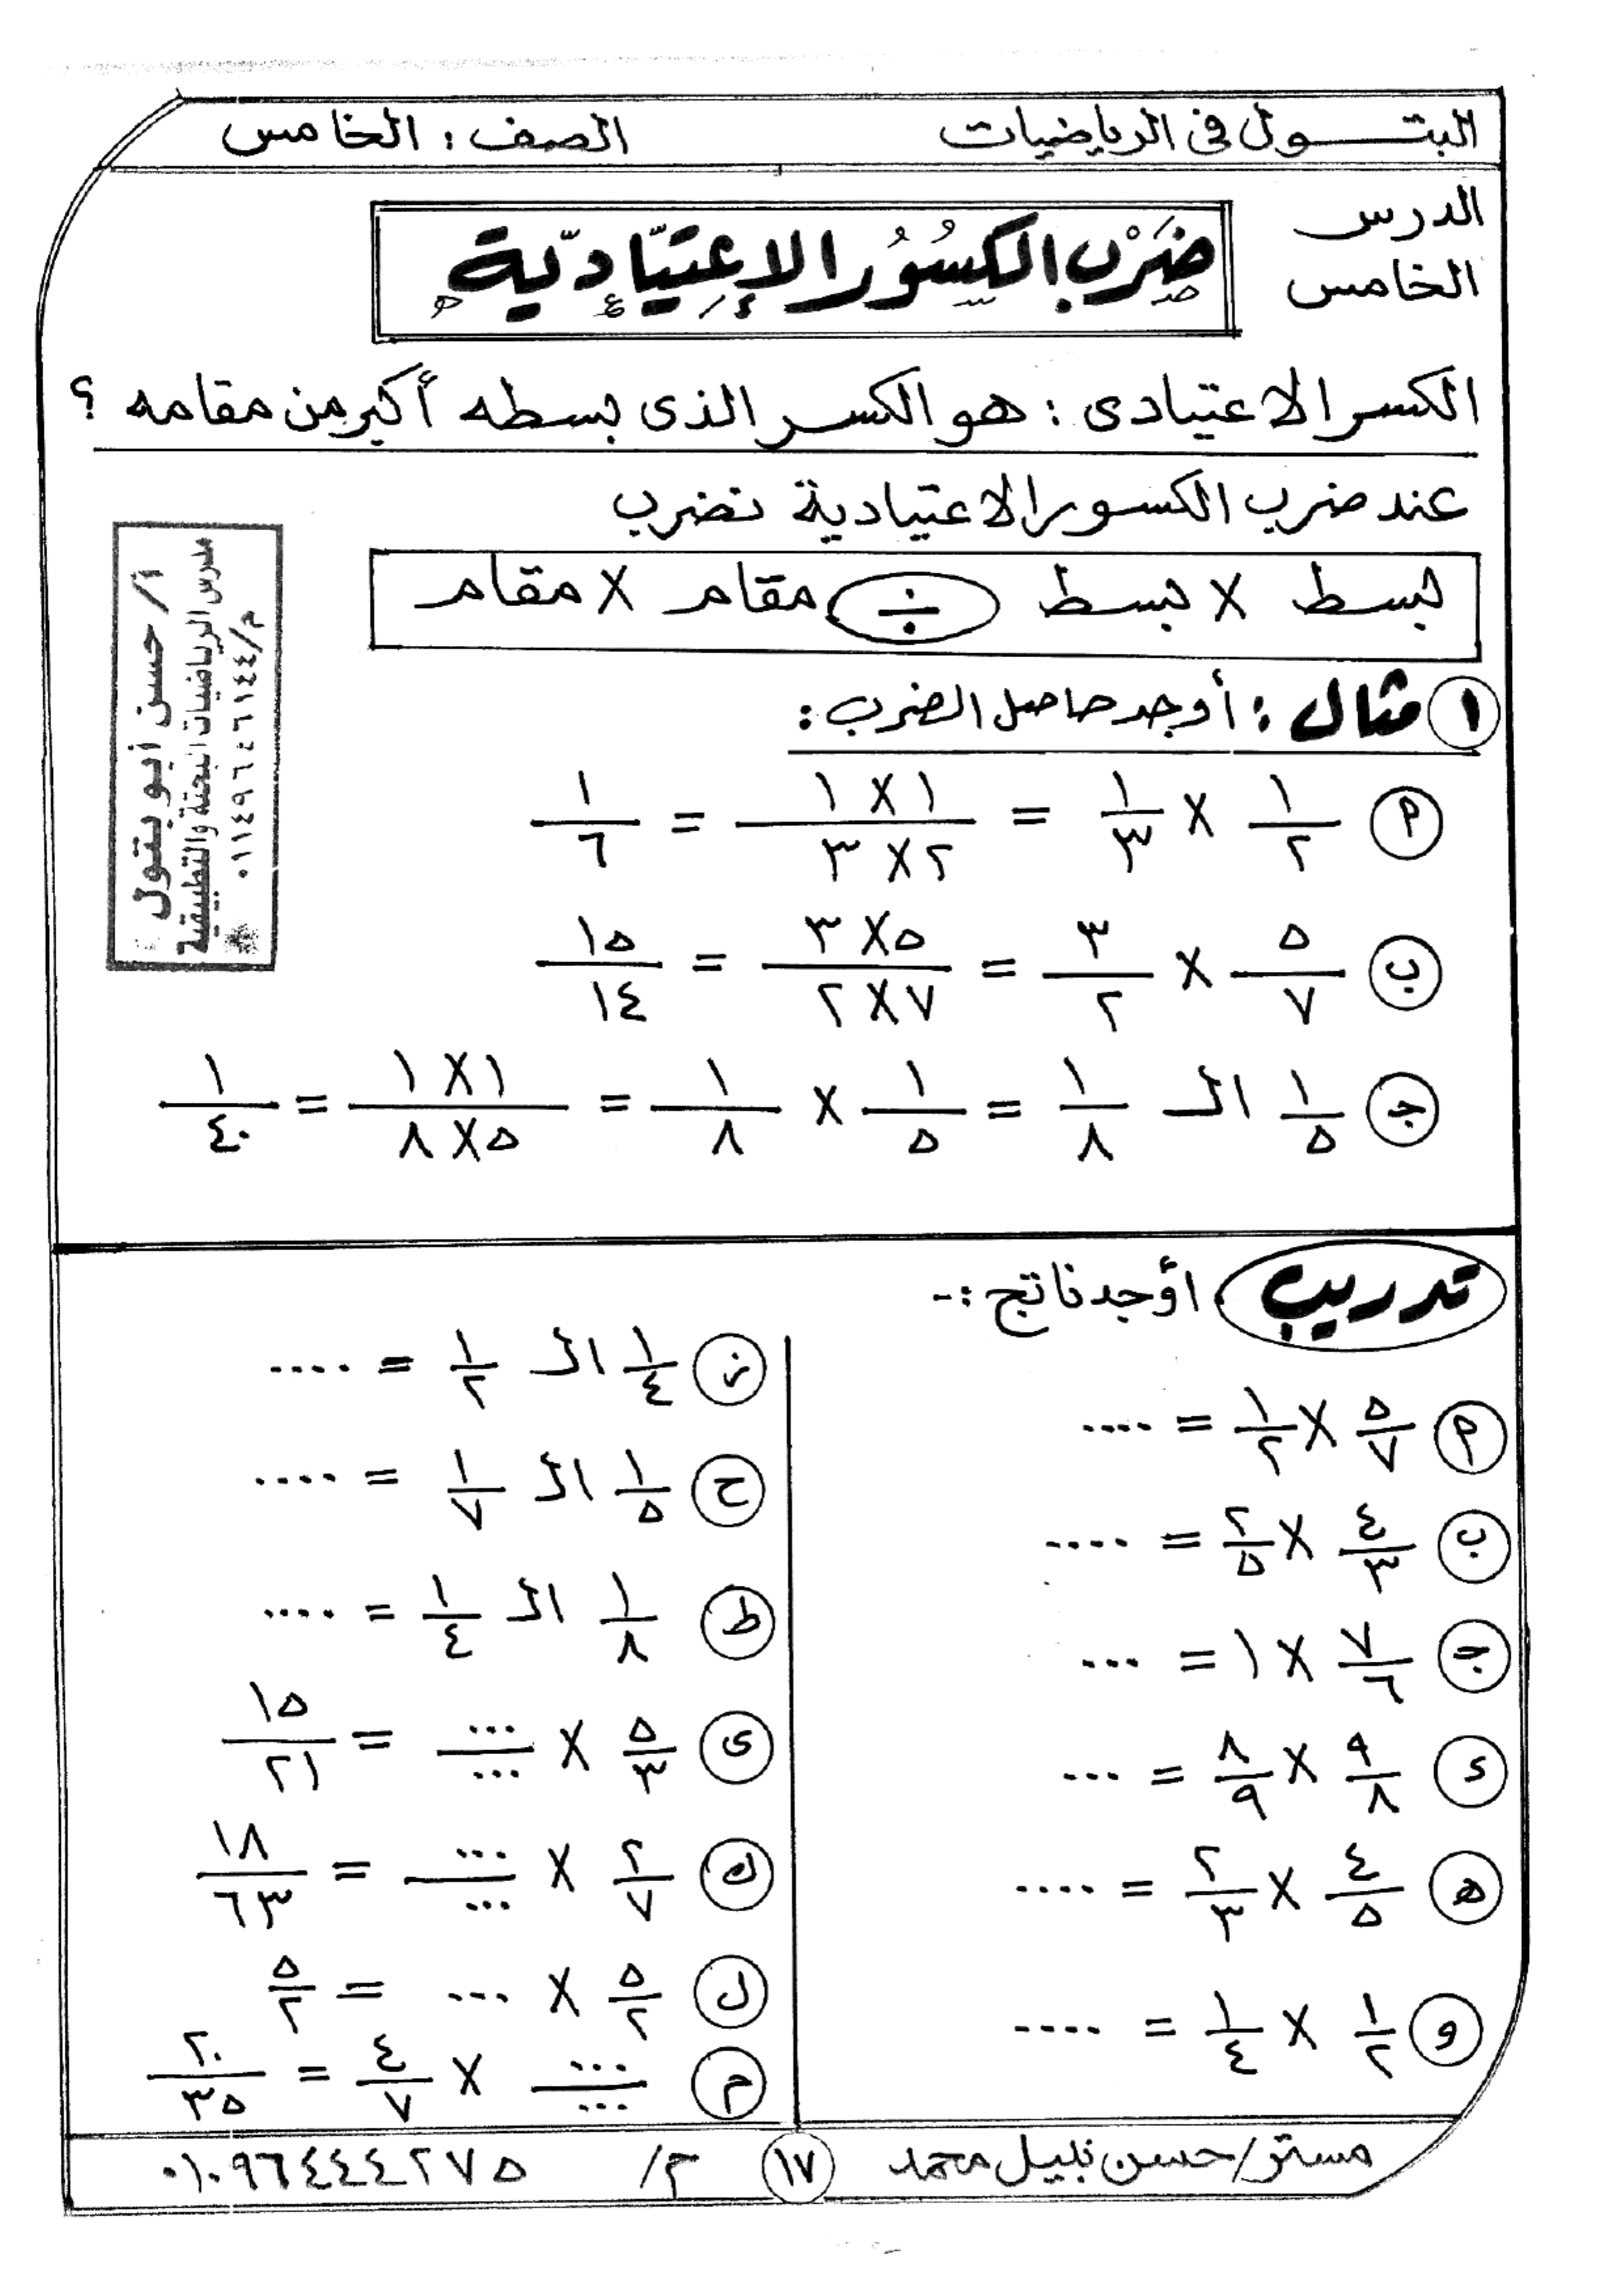 البتـــول فى الرياضيات
الصف : الخامس
الدرس
الخامس
ضَرْب الكسُوُر الإعتِيّادِيّة
الكسر الاعتيادى : هو الكسر الذى بسطه أكبر من مقامه ؟
عند ضرب الكسور الاعتيادية نضرب
بسط X بسط ÷ مقام X مقام
أ/ حسن أبو بتول
مدرس الرياضيات البحتة والتطبيقية
م/ ٠١١٤٩٦٤٦١٤٤
١ مثال : أوجد حاصل الضرب :
أ ١/٢ X ١/٣ = ١X١ / ٢X٣ = ١/٦
ب ٥/٧ X ٣/٢ = ٥X٣ / ٧X٢ = ١٥/١٤
جـ ١/٥ الـ ١/٨ = ١/٥ X ١/٨ = ١X١ / ٥X٨ = ١/٤٠
تدريب أوجد ناتج :-
أ ٥/٧ X ١/٢ = ....
ب ٤/٣ X ٢/٥ = ....
جـ ٧/٦ X ١ = ...
د ٩/٨ X ٨/٩ = ...
هـ ٤/٥ X ٢/٣ = ....
و ١/٢ X ١/٤ = ....
ز ١/٤ الـ ١/٢ = ....
ح ١/٥ الـ ١/٧ = ....
ط ١/٨ الـ ١/٤ = ....
ى ٥/٣ X .../... = ١٥/٢١
ك ٢/٧ X .../... = ١٨/٦٣
ل ٥/٢ X ... = ٥/٢
م .../... X ٤/٧ = ٢٠/٣٥
مستر/ حسن نبيل محمد
١٧
م/ ٠١٠٩٦٤٤٤٢٧٥